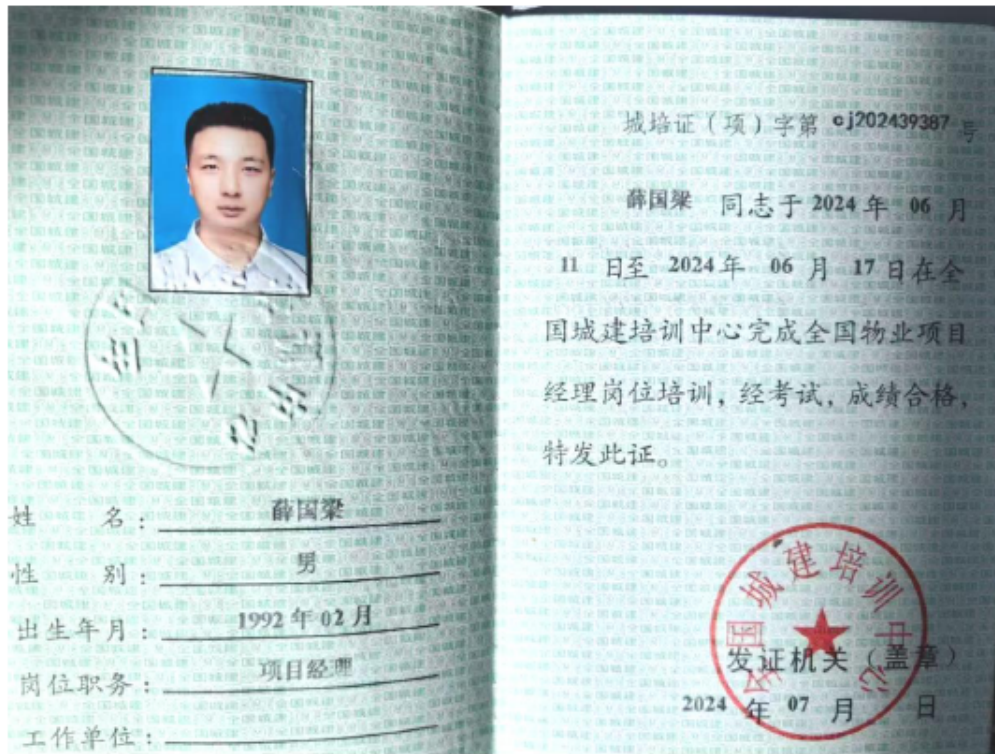 姓 名：薛国梁
性 别：男
出生年月：1992 年 02 月
岗位职务：项目经理
工作单位：
城培证（项）字第 cj202439387 号
薛国梁 同志于 2024 年 06 月
11 日至 2024 年 06 月 17 日在全
国城建培训中心完成全国物业项目
经理岗位培训，经考试，成绩合格，
特发此证。
全国城建培训中心
发证机关（盖章）
2024 年 07 月 日